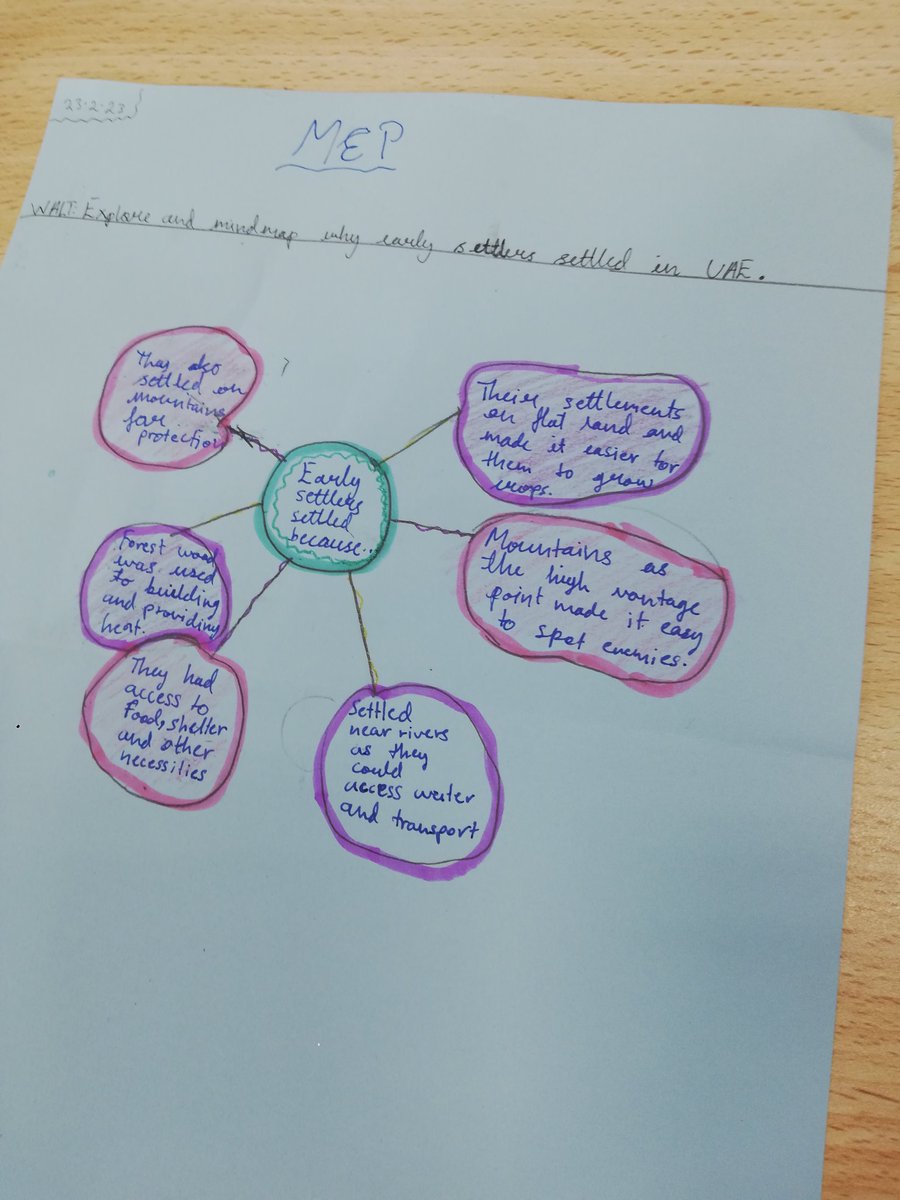 23-2-23
MEP
WALT: Explore and mindmap why early settlers settled in UAE.
They also
settled on
mountains
for
protection
Early
settlers
settled
because...
Their settlements
on flat land and
made it easier for
them to grow
crops.
Mountains as
the high vantage
point made it easy
to spot enemies.
Forest wood
was used
to building
and providing
heat.
They had
access to
food, shelter
and other
necessilies
Settled
near rivers
as they
could
access water
and transport